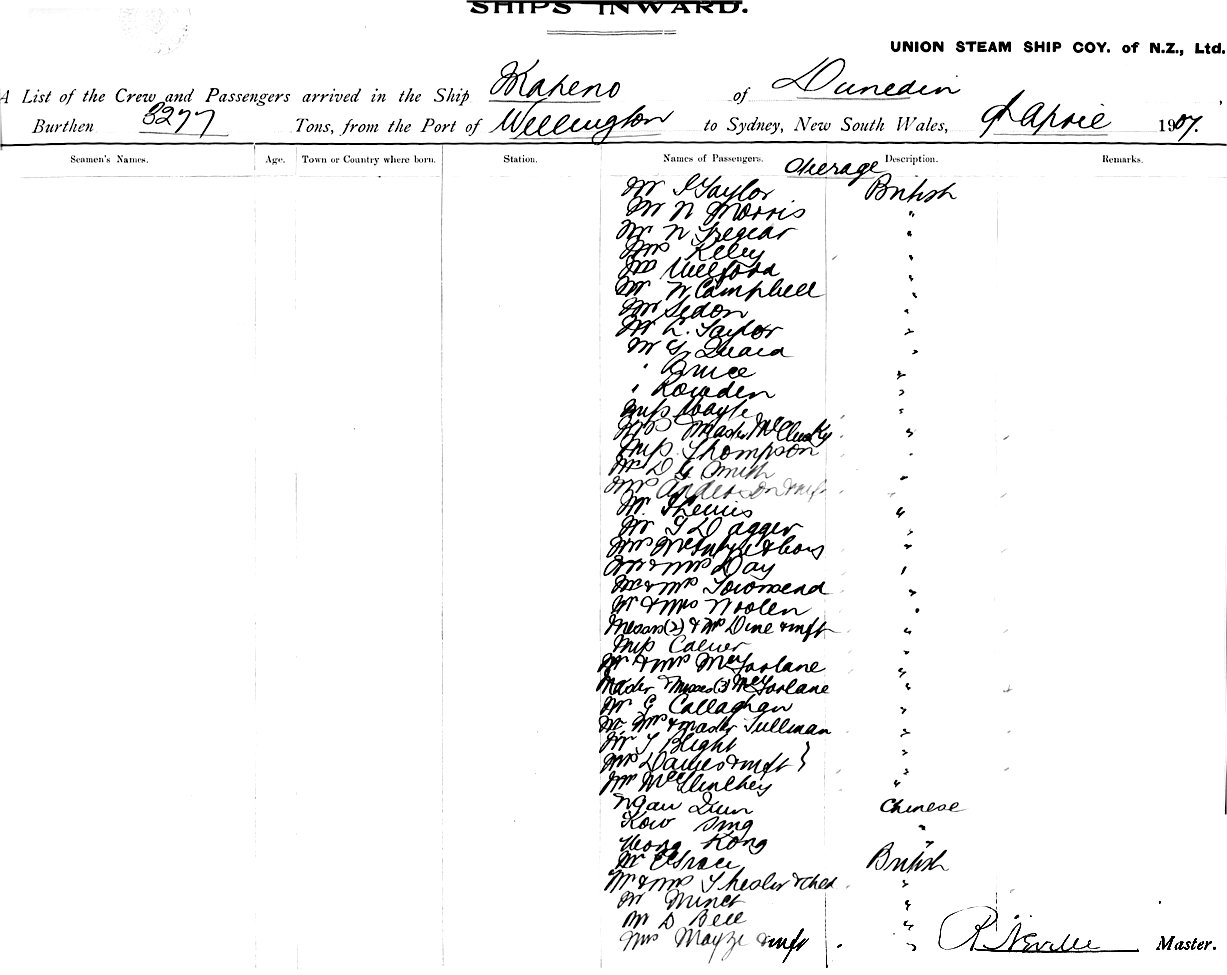 SHIPS INWARD.
UNION STEAM SHIP COY. of N.Z., Ltd.
A List of the Crew and Passengers arrived in the Ship Maheno of Dunedin
Burthen 3277 Tons, from the Port of Wellington to Sydney, New South Wales, 9 April 1907.
Seamen's Names. Age. Town or Country where born. Station. Names of Passengers. Description. Remarks.
Steerage
Mr Taylor British
Mr N Morris "
Mr N Tregear "
Mrs Kelley "
Mr Wellford "
Mr W Campbell "
Mr Sedon "
Mr L. Taylor "
Mr G Quaid "
" Bruce "
" Rowden "
Miss "
Mrs Master McClusky "
Miss Thompson "
Mr D G Smith "
Mrs Anderson & inft "
Mr. "
Mr Dagger "
Mrs & boy "
Mr & Mrs Day "
Mr & Mrs Townsend "
Mr & Mrs Noolen "
Messrs (2) & Mrs Dine & inft "
Miss "
Mr & Mrs McFarlane "
Master & Misses (3) McFarlane "
Mr G Callaghan "
Mr Mrs & Master Tullman "
Mr T Blight "
Mrs Davies & inft "
Mr McClinchey "
Ngau Chinese
Kow Sing "
Kong "
Mr Grace British
Mr & Mrs & "
Mr "
Mr D Bell "
Mrs & inft "
R Neville Master.